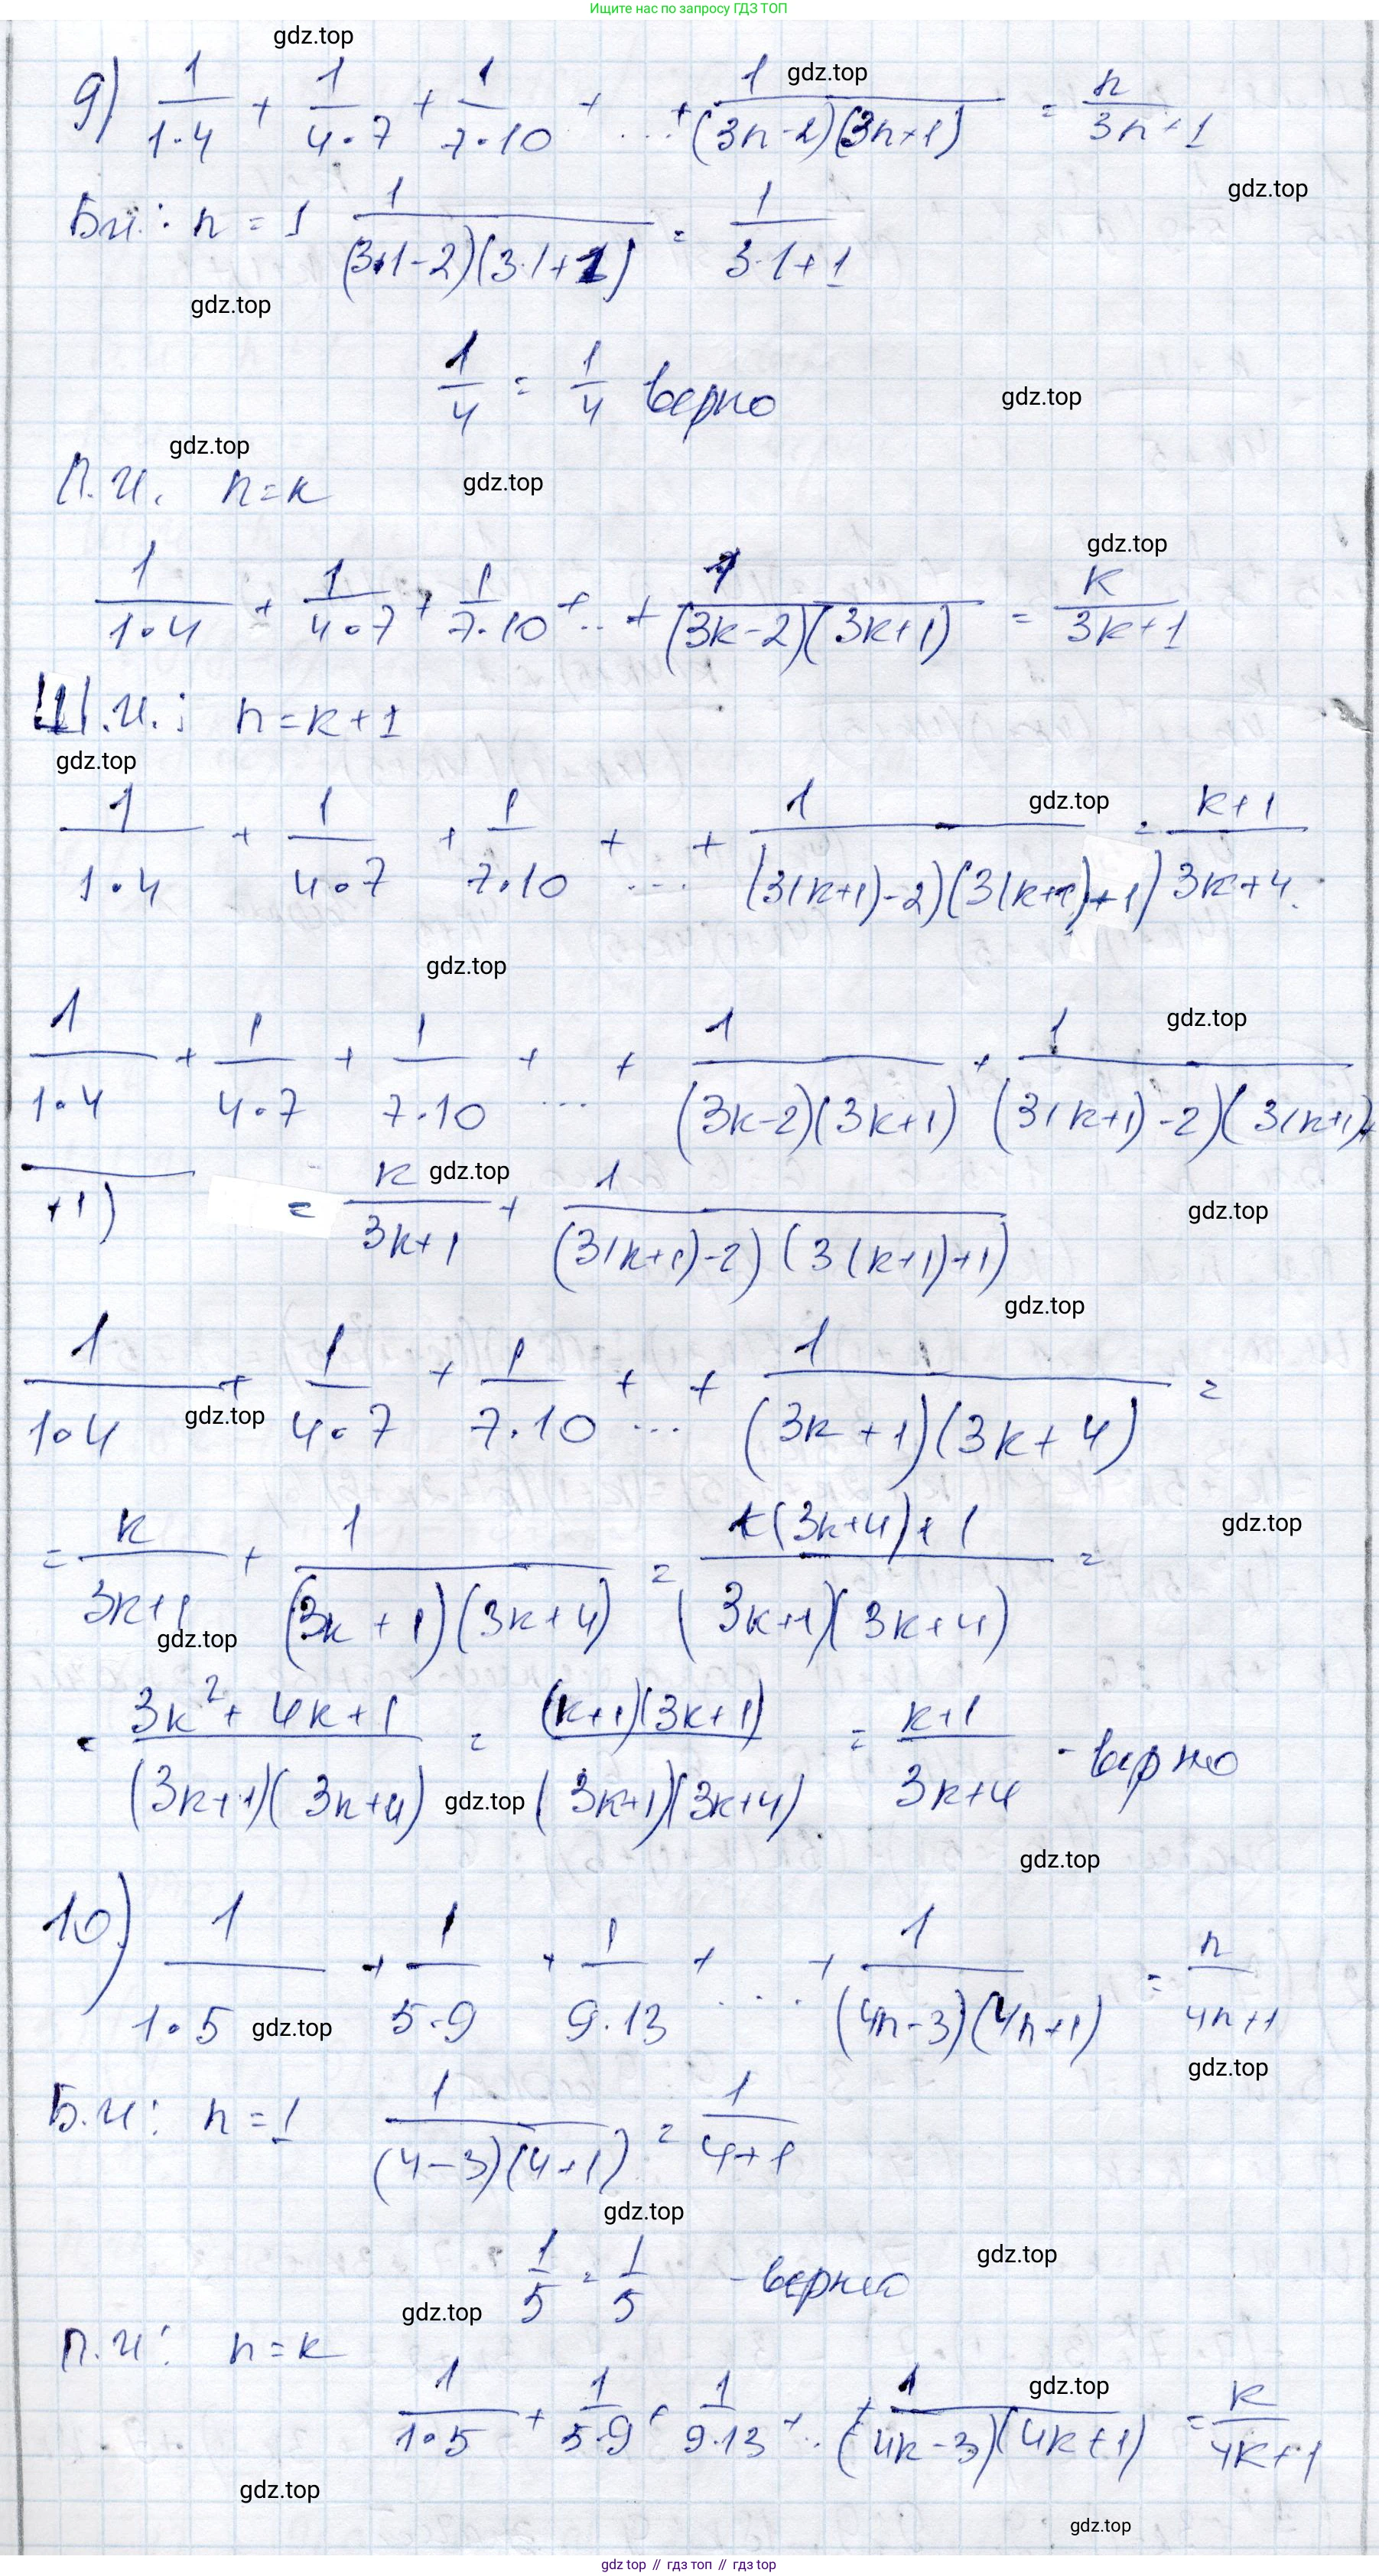 Ищите нас по запросу ГДЗ ТОП
gdz.top
9) 1/(1·4) + 1/(4·7) + 1/(7·10) + ... + 1/((3n-2)(3n+1)) = n/(3n+1)
gdz.top
gdz.top
Б.И.: n = 1 1/((3·1-2)(3·1+1)) = 1/(3·1+1)
gdz.top
1/4 = 1/4 верно
gdz.top
gdz.top
П.И. n=k
gdz.top
gdz.top
1/(1·4) + 1/(4·7) + 1/(7·10) + .. + 1/((3k-2)(3k+1)) = k/(3k+1)
Ш.И.: n=k+1
gdz.top
1/(1·4) + 1/(4·7) + 1/(7·10) + ... + 1/((3(k+1)-2)(3(k+1)+1)) = (k+1)/(3k+4)
gdz.top
gdz.top
1/(1·4) + 1/(4·7) + 1/(7·10) + ... + 1/((3k-2)(3k+1)) + 1/((3(k+1)-2)(3(k+1)+
gdz.top
+1) = k/(3k+1) + 1/((3(k+1)-2)(3(k+1)+1))
gdz.top
gdz.top
gdz.top
1/(1·4) + 1/(4·7) + 1/(7·10) + ... + 1/((3k+1)(3k+4)) =
gdz.top
= k/(3k+1) + 1/((3k+1)(3k+4)) = (k(3k+4)+1)/((3k+1)(3k+4)) =
gdz.top
gdz.top
= (3k²+4k+1)/((3k+1)(3k+4)) = ((k+1)(3k+1))/((3k+1)(3k+4)) = (k+1)/(3k+4) - верно
gdz.top
gdz.top
10) 1/(1·5) + 1/(5·9) + 1/(9·13) + ... + 1/((4n-3)(4n+1)) = n/(4n+1)
gdz.top
gdz.top
Б.И: n=1 1/((4-3)(4+1)) = 1/(4+1)
gdz.top
1/5 = 1/5 - верно
gdz.top
gdz.top
П.И: n=k
1/(1·5) + 1/(5·9) + 1/(9·13) + .. + 1/((4k-3)(4k+1)) = k/(4k+1)
gdz.top
gdz.top
gdz.top
gdz top // гдз топ // гдз top